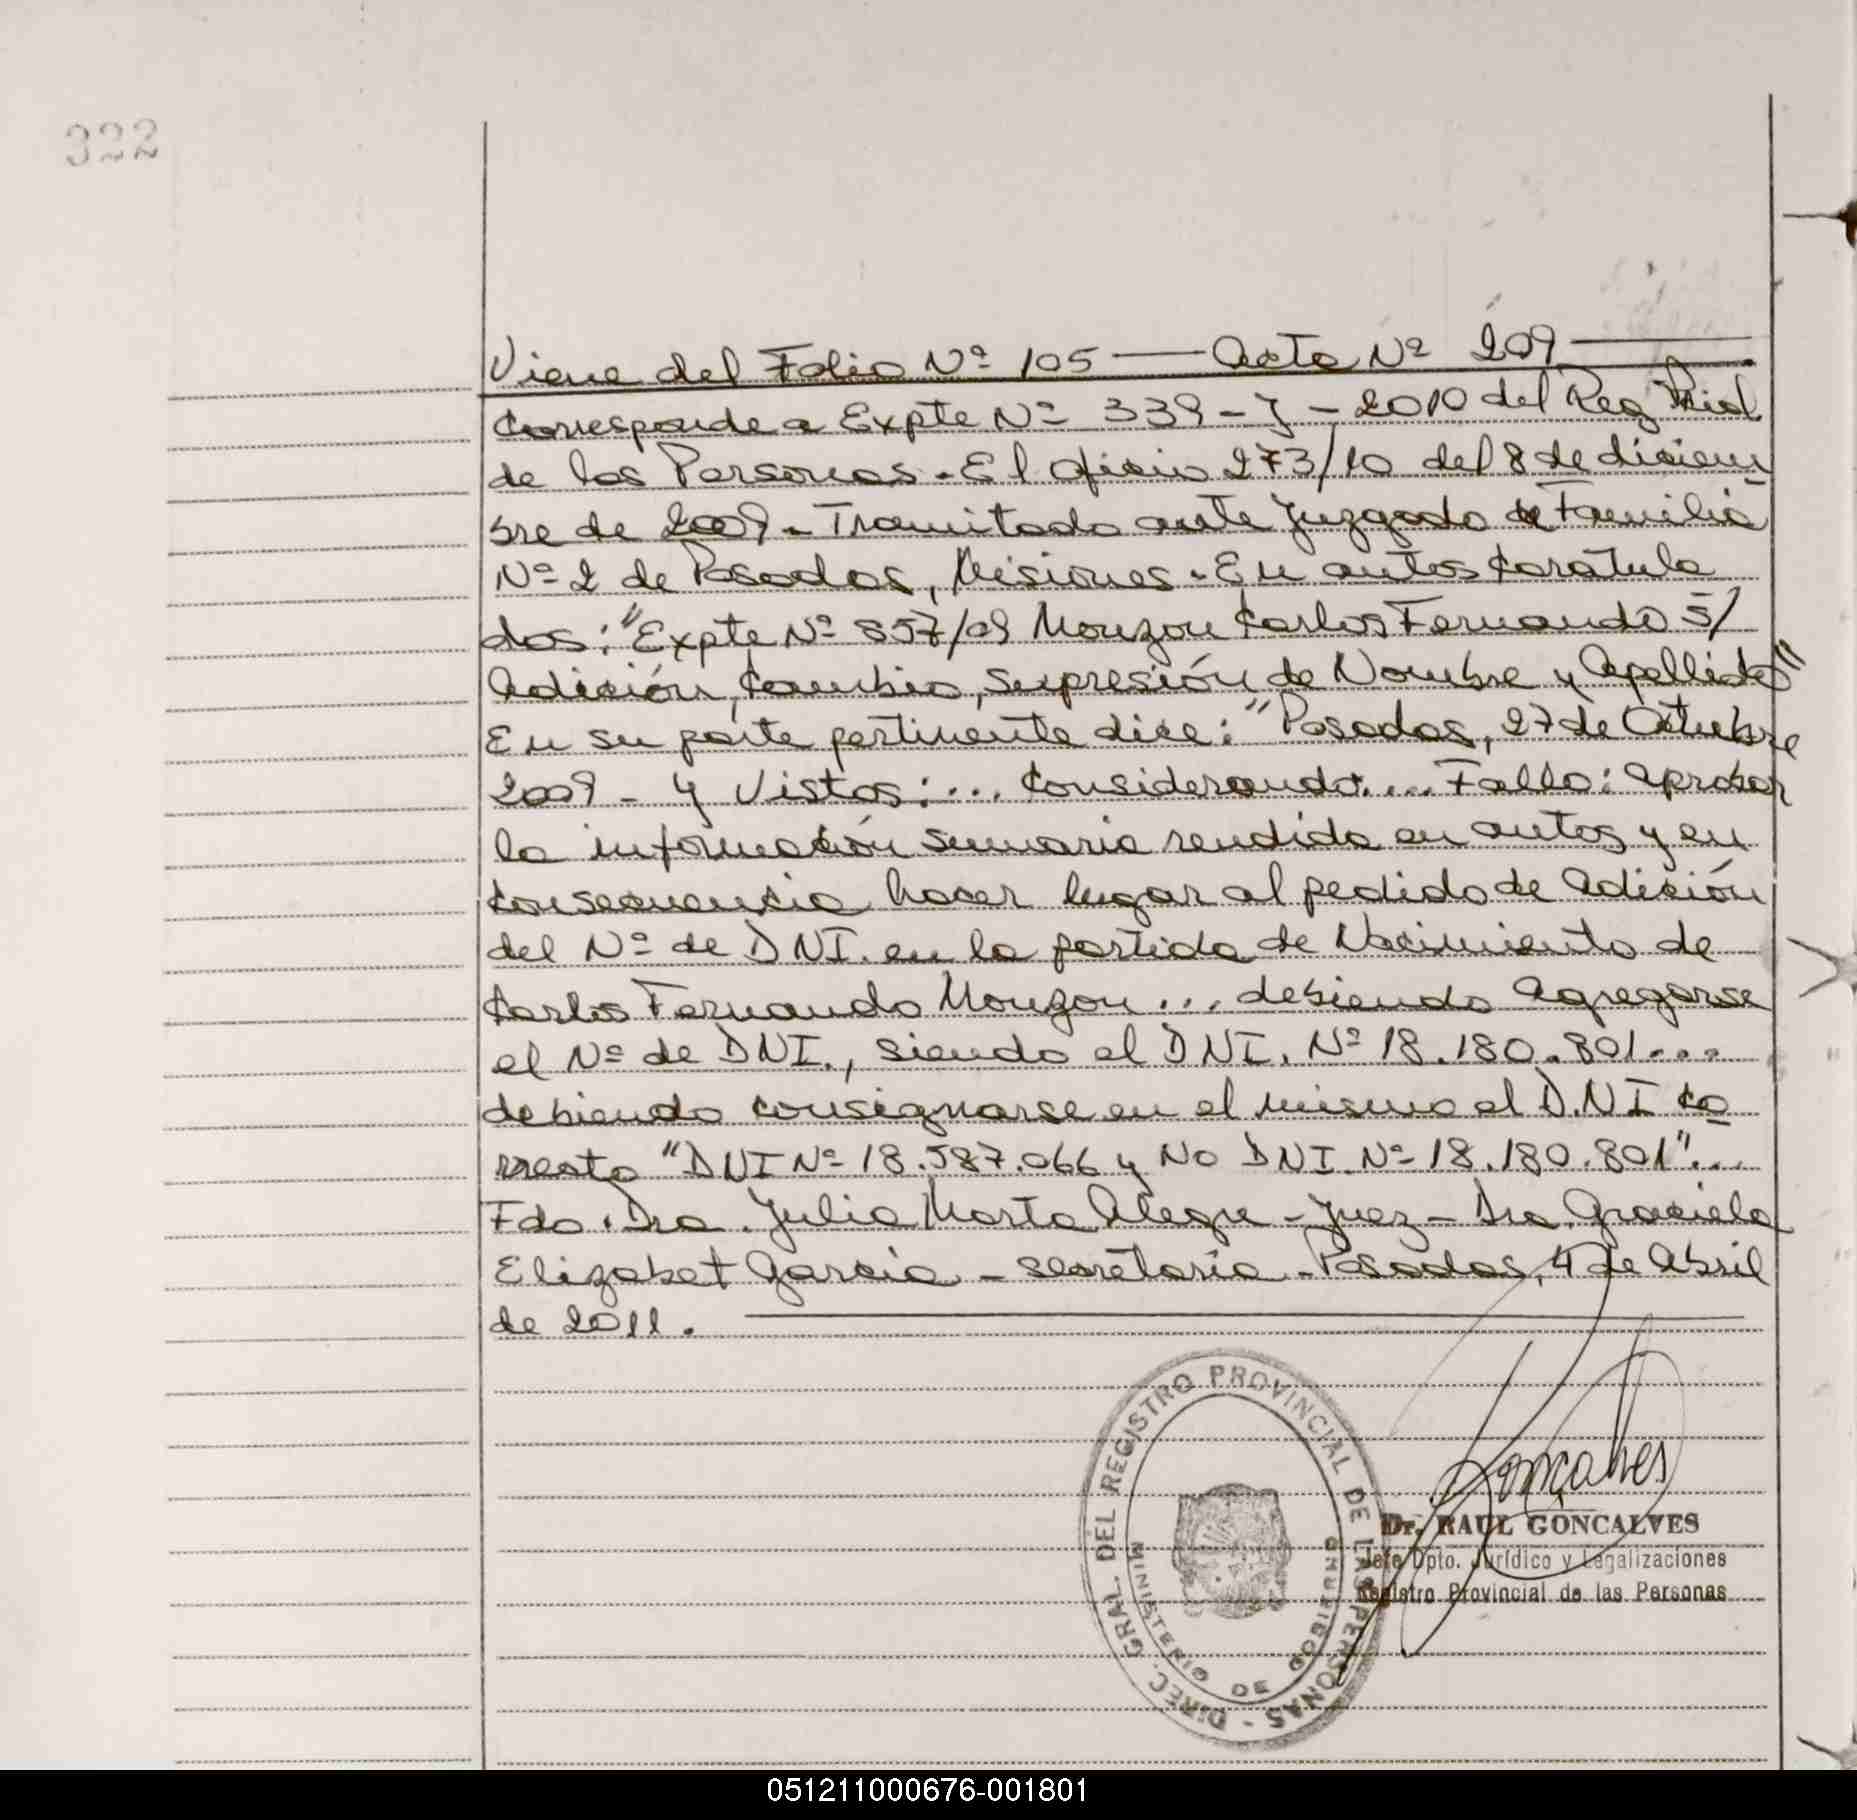 322
Viene del Folio Nº 105 — Acta Nº 209
Corresponde a Expte Nº 339-J-2010 del Reg Prial
de las Personas. El oficio 273/10 del 8 de diciem
bre de 2009. Tramitado ante Juzgado de Familia
Nº 2 de Posadas, Misiones. En autos Caratula
dos: "Expte Nº 857/09 Monzon Carlos Fernando S/
Adición, Cambio, Supresión de Nombre y Apellido"
En su parte pertinente dice: "Posadas, 27 de Octubre
2009 - Y Vistos:... Considerando:... Fallo: Aprobar
la información sumaria rendida en autos y en
Consecuencia hacer lugar al pedido de Adición
del Nº de DNI. en la partida de Nacimiento de
Carlos Fernando Monzon ... debiendo Agregarse
el Nº de DNI., siendo el DNI. Nº 18.180.801....
debiendo consignarse en el mismo el D.N I co
rrecto "DNI Nº 18.587.066 y No DNI. Nº 18.180.801"...
Fdo. Dra. Julia Marta Alegre - Juez - Dra. Graciela
Elizabet Garcia - secretaria - Posadas, 4 de Abril
de 2011.
DIREC. GRAL. DEL REGISTRO PROVINCIAL DE LAS PERSONAS -
MINISTERIO DE GOBIERNO
Goncalves
Dr. RAUL GONCALVES
Jefe Dpto. Jurídico y Legalizaciones
Registro Provincial de las Personas
051211000676-001801